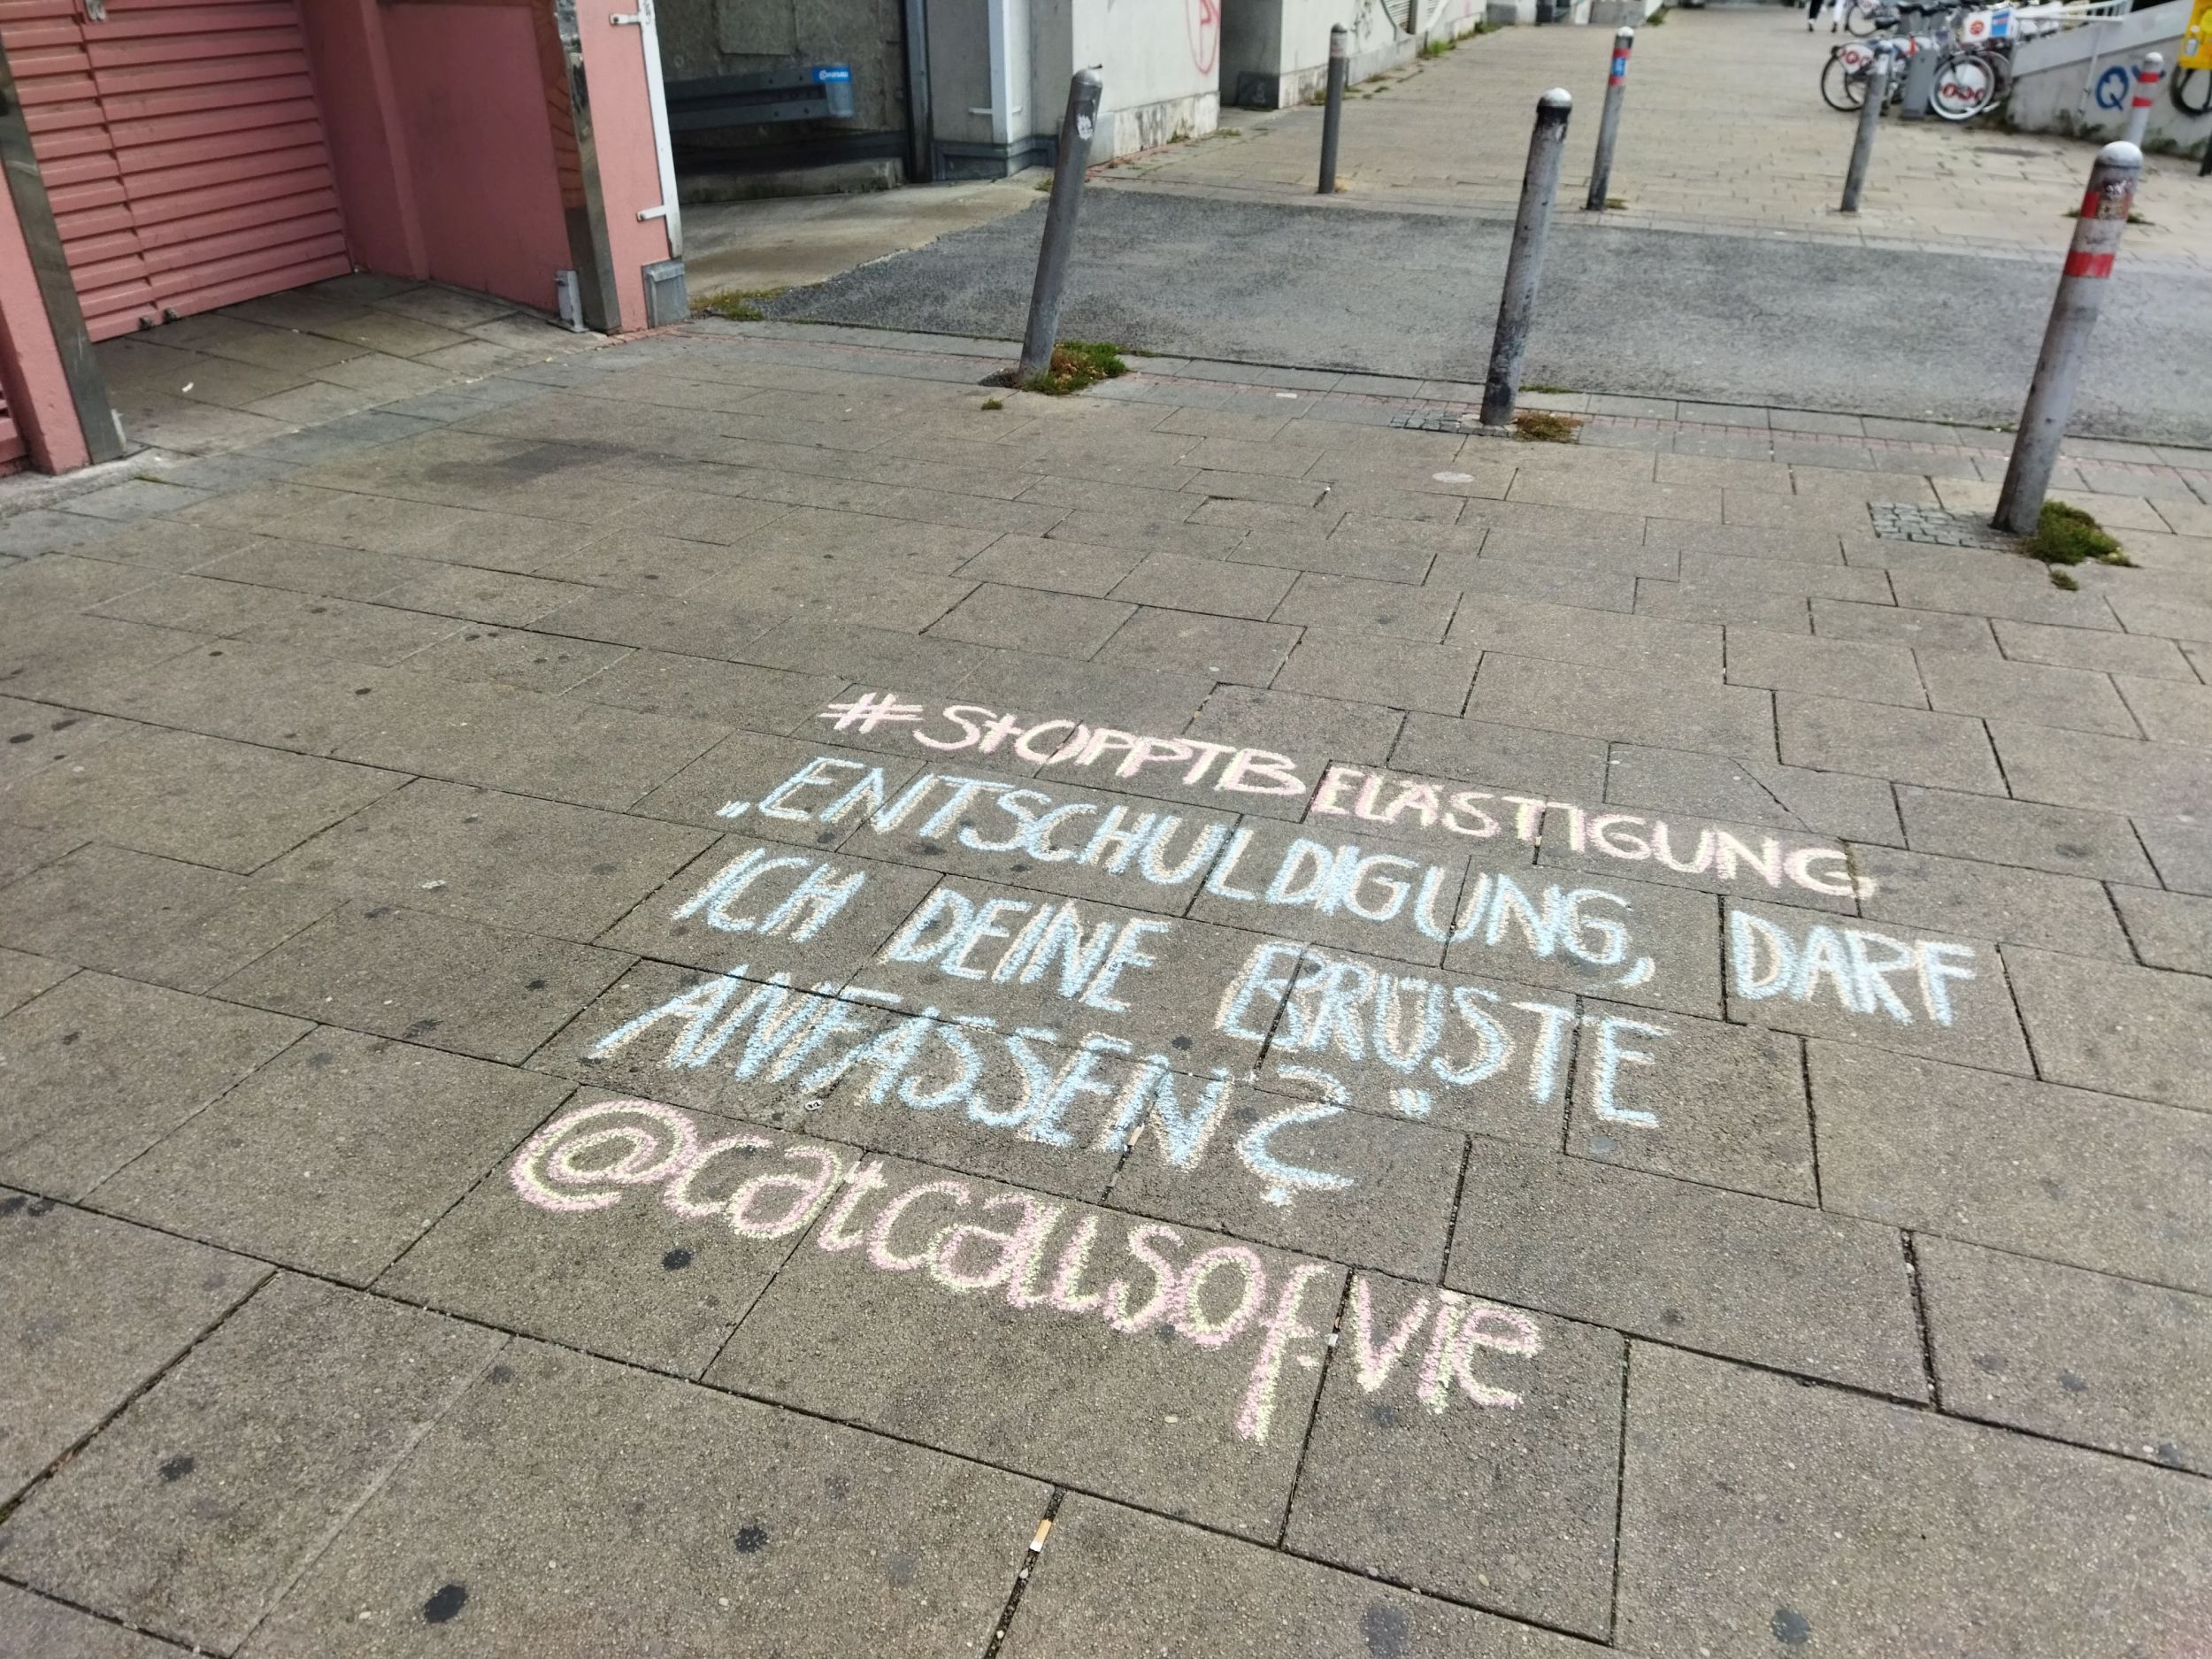 #STOPPTBELÄSTIGUNG
„ENTSCHULDIGUNG, DARF
ICH DEINE BRÜSTE
ANFASSEN?"
@catcallsof.vie